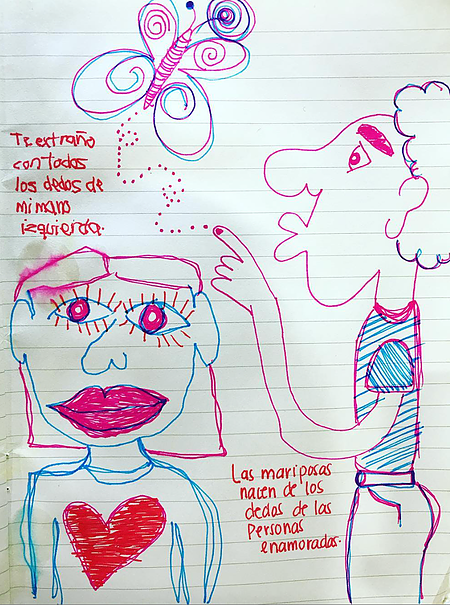 Te extraño
con todos
los dedos de
mi mano
izquierda.
Las mariposas
nacen de los
dedos de las
personas
enamoradas.